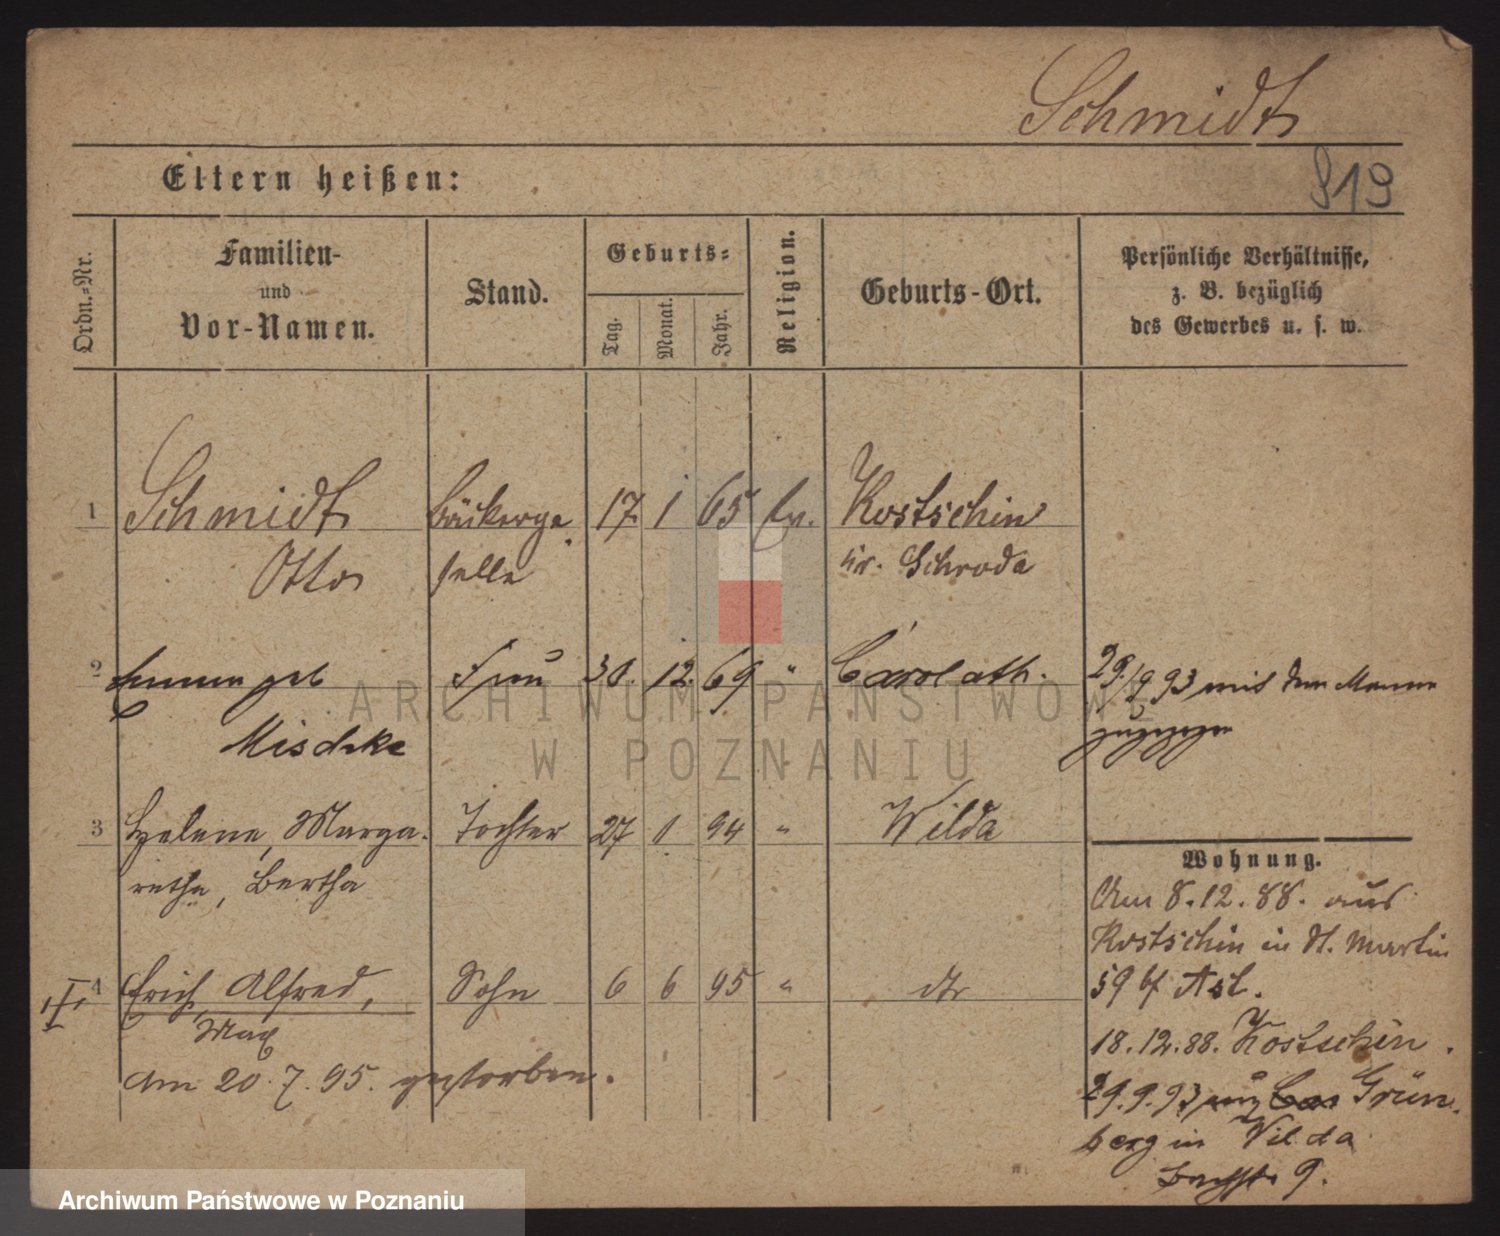 Schmidt
Eltern heißen:
919
Ordn.-Nr.
Familien-
und
Vor-Namen.
Stand.
Geburts-
Tag.
Monat.
Jahr.
Religion.
Geburts-Ort.
Persönliche Verhältnisse,
z. B. bezüglich
des Gewerbes u. s. w.
1 Schmidt Bäckerge 17. 1 65 Ev. Kostschin
Otto selle Kr. Schroda
2 geb Frau 30. 12. 69 " Carolath. 29/9 93 mit dem Manne
Mischke zugezogen
ARCHIWUM PAŃSTWOWE
W POZNANIU
3 Helene, Marga- Tochter 27 1 94 " Wilda
retha, Bertha
Wohnung.
Am 8.12.88. aus
Kostschin in St. Martin
4 Erich, Alfred, Sohn 6 6 95 " dto
59 bei
Max
18.12.88. Kostschin.
am 20.7.95. gestorben.
29.9.93 aus Grün-
berg in Wilda
9.
Archiwum Państwowe w Poznaniu